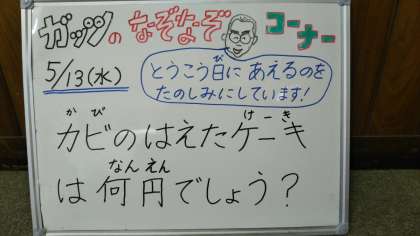 ガッツのなぞなぞコーナー
5/13(水)
とうこう日にあえるのを
たのしみにしています!
カビのはえたケーキ
は何円でしょう?